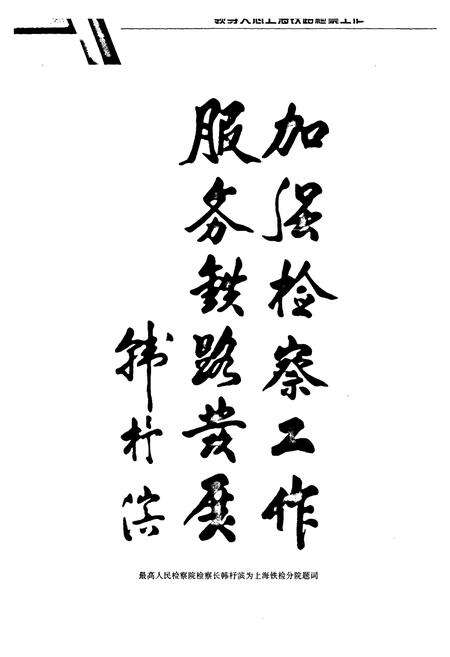 领导关心上海铁路检察工作
加强检察工作
服务鉄路發展
韩杼滨
最高人民检察院检察长韩杼滨为上海铁检分院题词